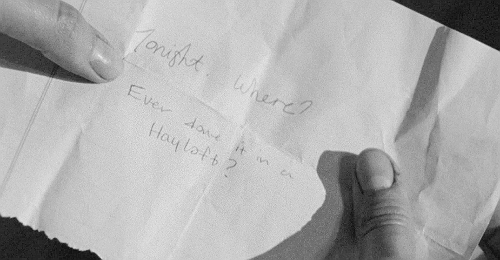 Tonight. Where?
Ever done it in a
Hayloft?